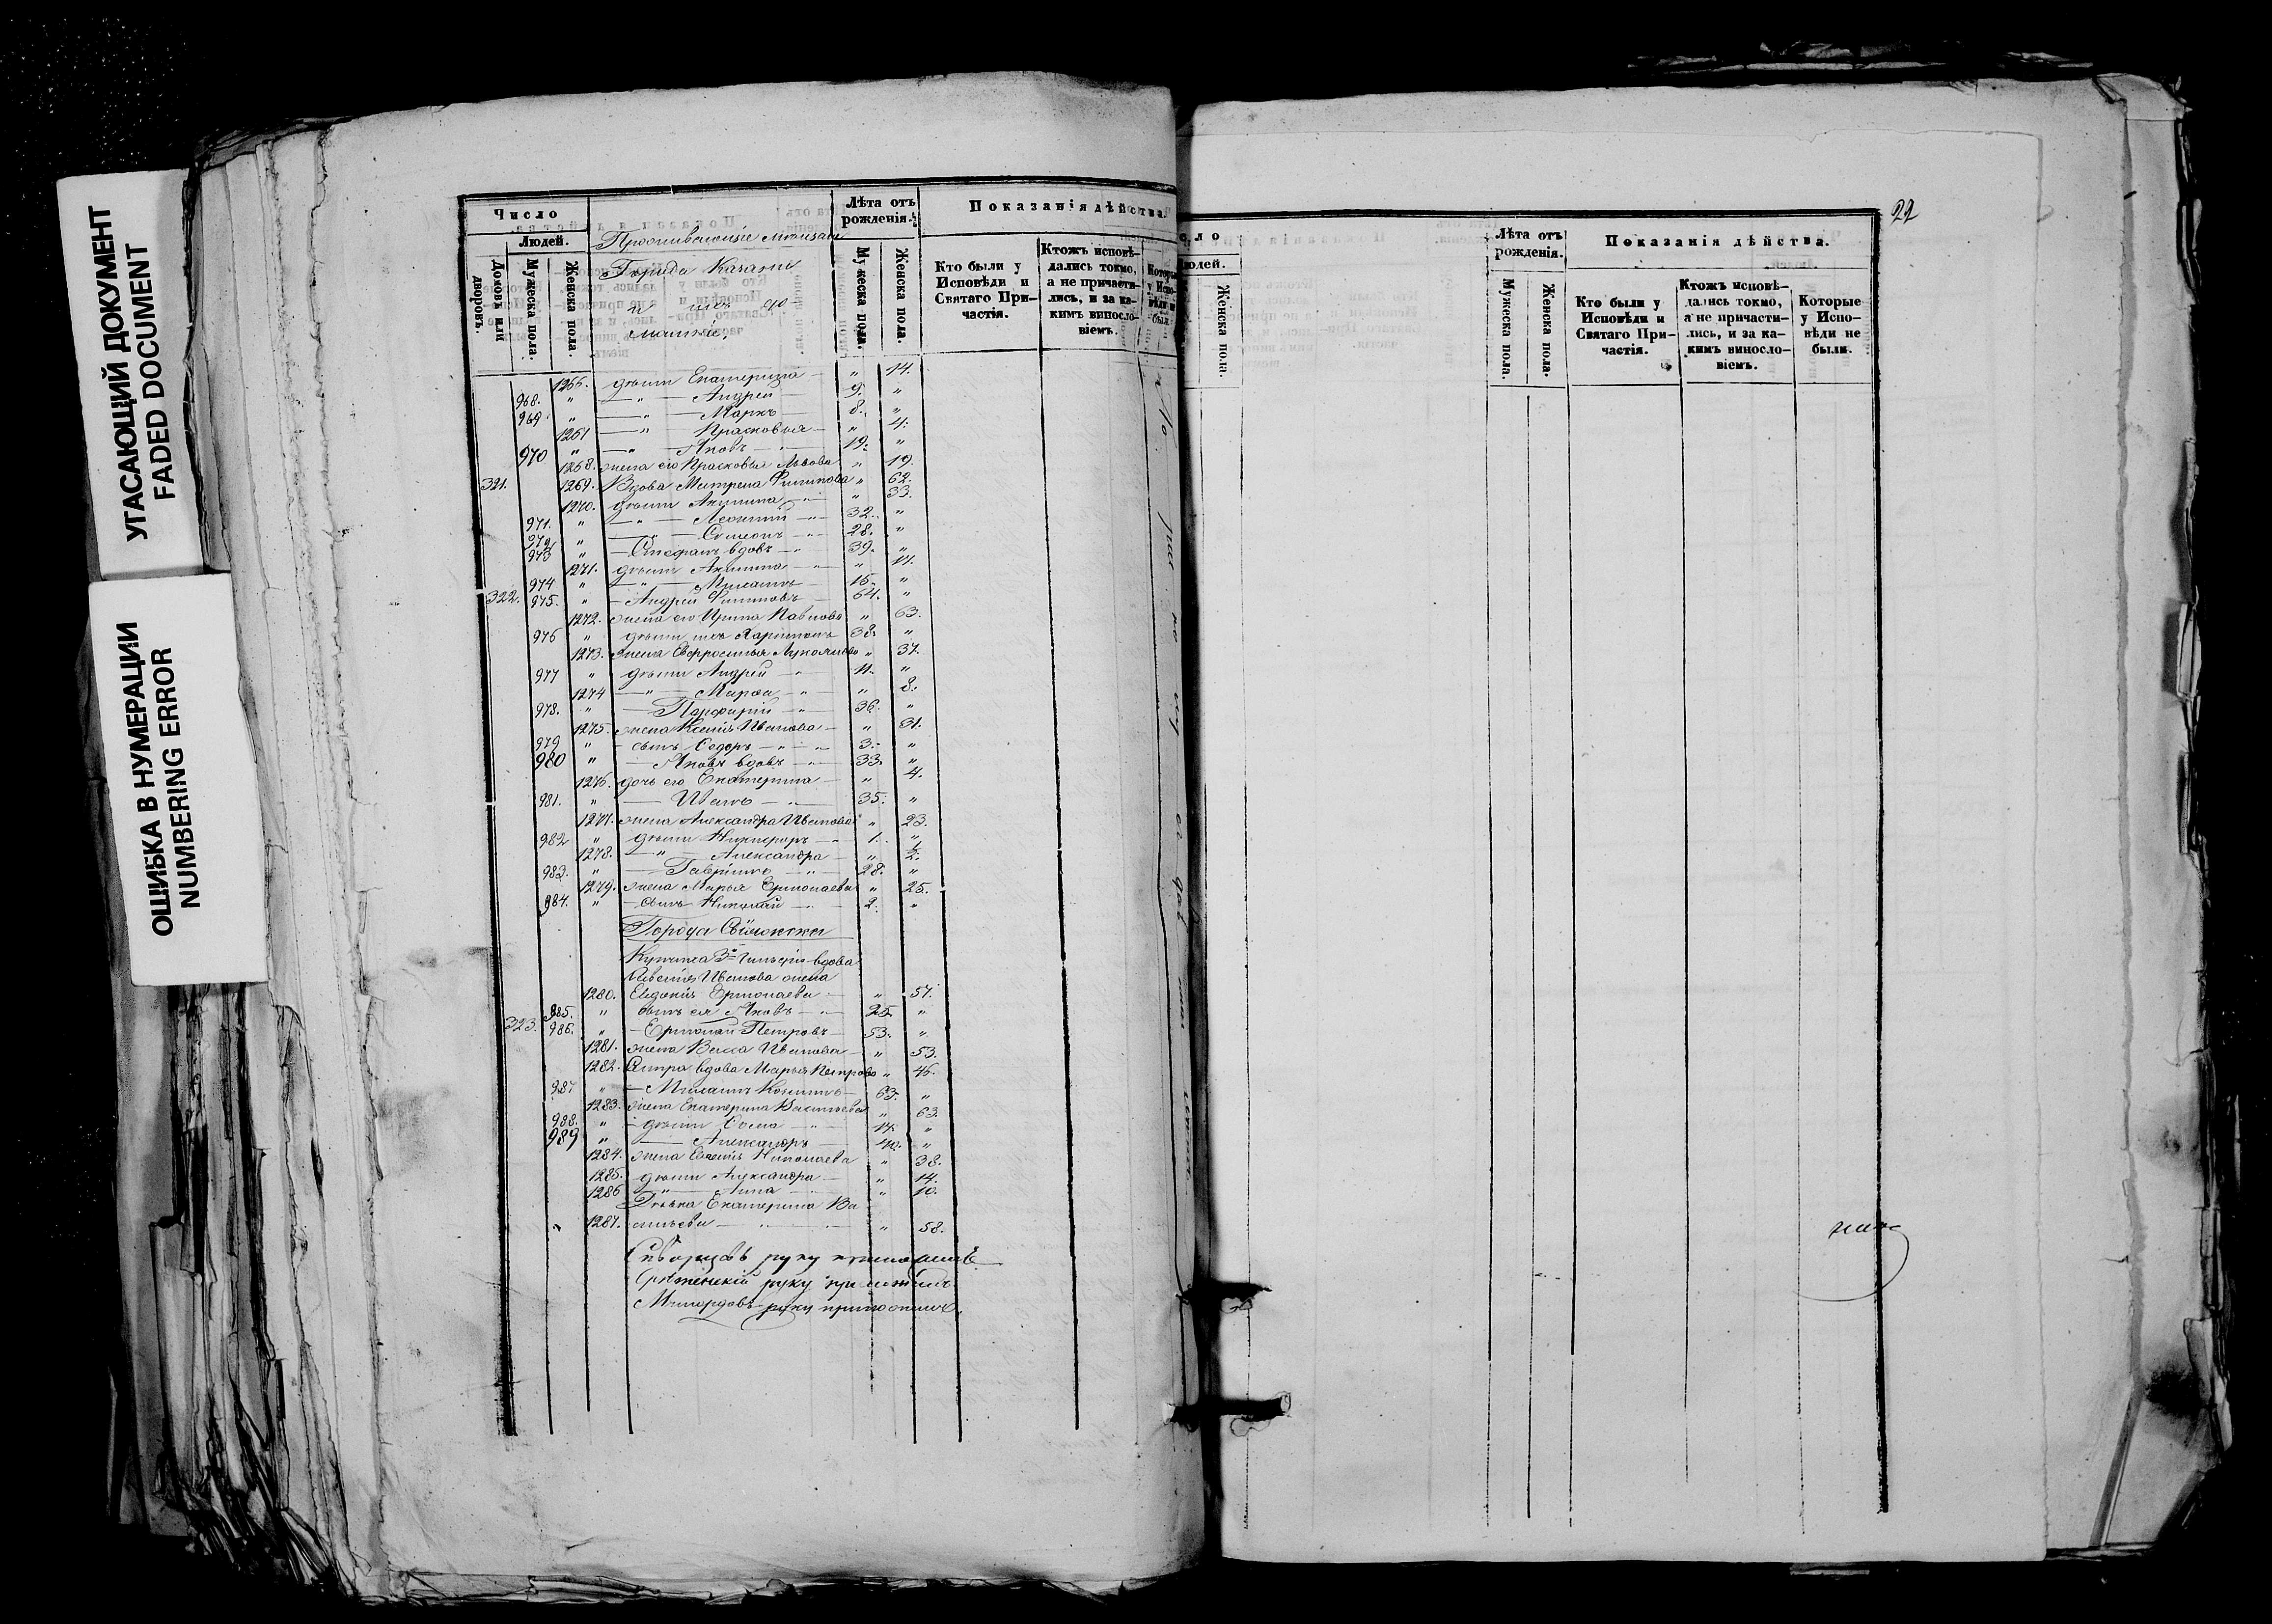 УГАСАЮЩИЙ ДОКУМЕНТ
FADED DOCUMENT
ОШИБКА В НУМЕРАЦИИ
NUMBERING ERROR
Число
Людей.
Домовъ или дворовъ.
Мужеска пола.
Женска пола.
Города Казани
Лѣта отъ рожденія.
Мужеска пола.
Женска пола.
Показанія дѣйства.
Кто были у Исповѣди и Святаго Причастія.
Ктожъ исповѣдались токмо, а не причастились, и за какимъ винословіемъ.
1266. дѣти Екатерина — " 14.
968. " — " — Андрей — 9. "
969. " — " — Маркъ 8. "
1267 — " Прасковья — " 4.
970 " — " — Яковъ — 19. "
1268. жена его Прасковья Львова " 19.
321. 1269. Вдова Матрена Филипова " 62.
1270. дѣти Акилина — " 33.
971. " — " — Леонтий — 32. "
972 " — " — Симеонъ — 28. "
973 " — Стефанъ вдовъ — 39. "
1271. дѣти Акилина — " 11.
974 " — " — Михаилъ — 16. "
322. 975. " — Андрей Филиповъ — 64. "
1272. жена его Ирина Павлова " 63.
976 " дѣти ихъ Харитонъ 38. "
1273. жена Евфросинья " 37.
977 " дѣти Андрей — 11. "
1274 — " — Марѳа — " 8.
978. " — Парфирій — 36. "
1275. жена Ксенія Иванова — " 31.
979 " — сынъ Ѳедоръ — 3. "
980 " — Яковъ вдовъ — 33. "
1276. дочь его Екатерина — " 4.
981. " — Иванъ — 35. "
1277. жена Александра Иванова " 23.
982 " дѣти Никифоръ — 1. "
1278. — " — Александра — " ½.
983. " — Гавріилъ — 28. "
1279. жена Марья Ермолаева " 25.
984. " — сынъ Николай — 2. "
Города Свіяжска
Иванова жена
1280. Евдокія Ермолаева — " 57.
985. " сынъ ея Яковъ — 25. "
323. 986. " — Ермолай Петровъ — 53. "
1281. жена Васса Иванова — " 53.
1282. вдова Марья Петрова " 46.
987 " — Михаилъ Козминъ — 63. "
1283. жена Екатерина Васильева " 63.
988. " — дѣти Ѳома — 14. "
989 " — Александръ — 40. "
1284. жена Евгенія Николаева " 38.
1285. дѣти Александра — " 14.
1286 — " — Анна — " 10.
Дѣвка Екатерина Ва
1287. сильева — " 58.
руку приложилъ
Срѣтенскій руку приложилъ
руку приложилъ
22
Женска пола.
Лѣта отъ рожденія.
Мужеска пола.
Женска пола.
Показанія дѣйства.
Кто были у Исповѣди и Святаго Причастія.
Ктожъ исповѣдались токмо, а не причастились, и за какимъ винословіемъ.
Которые у Исповѣди не были.